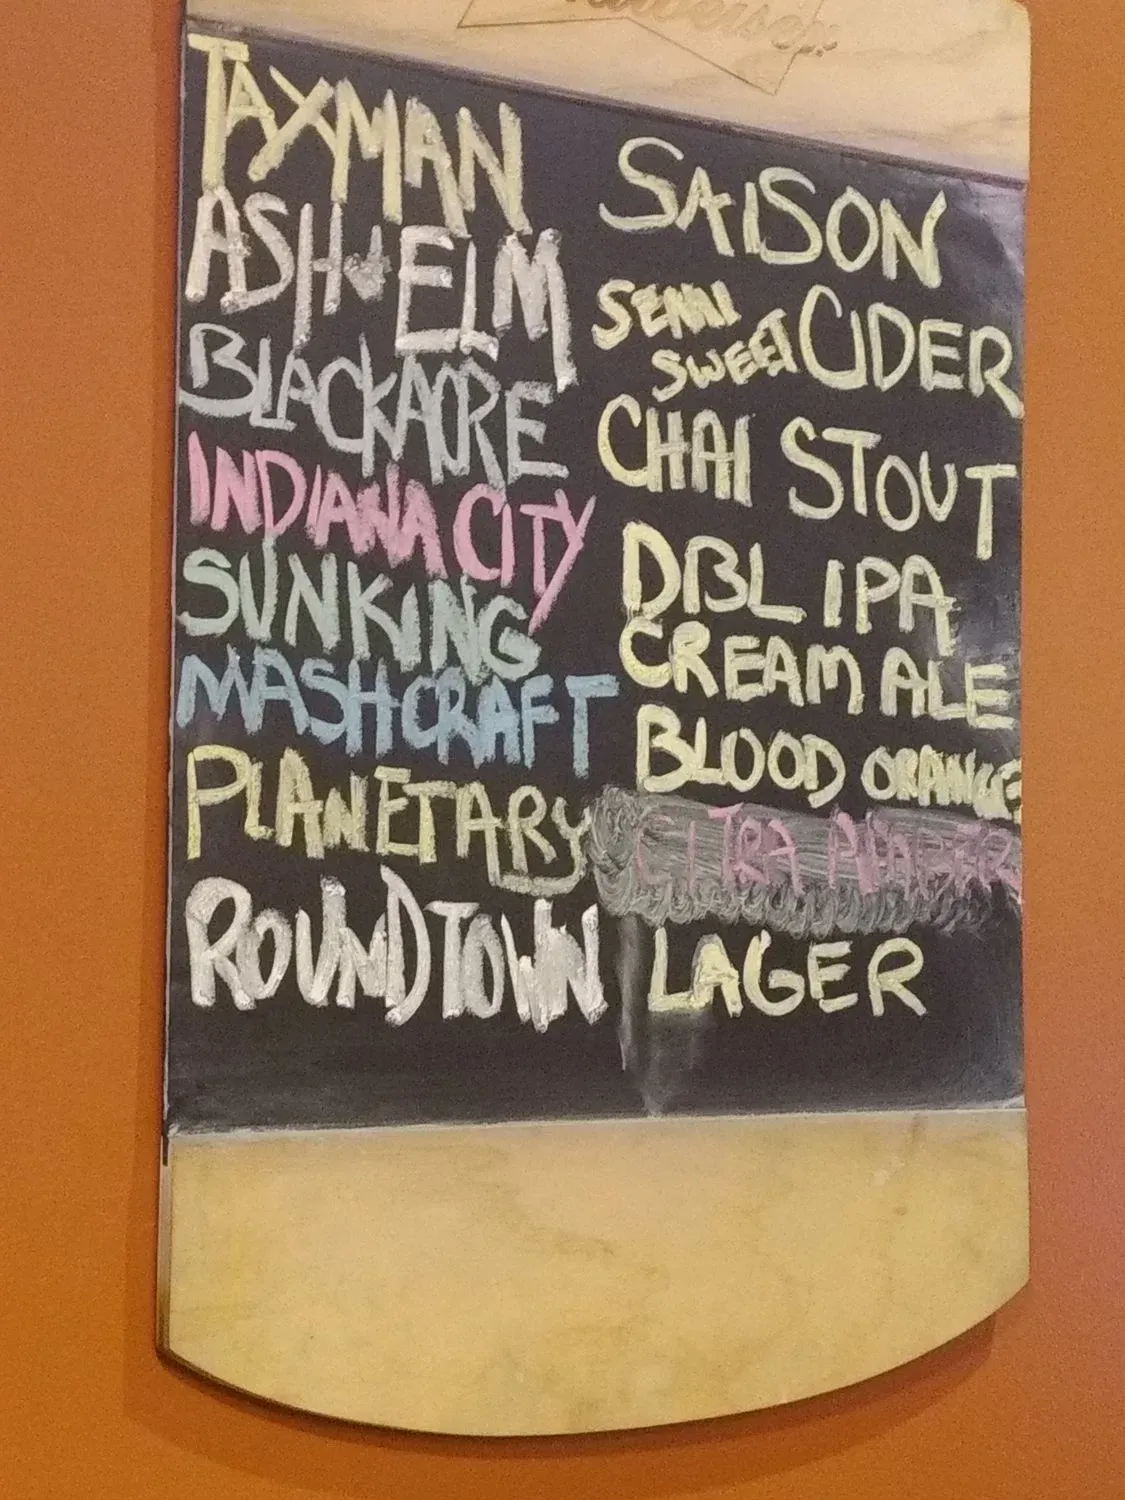 TAXMAN SAISON
ASH & ELM SEMI SWEET CIDER
BLACKACRE CHAI STOUT
INDIANA CITY DBL IPA
SUNKING CREAM ALE
MASHCRAFT BLOOD ORANGE
PLANETARY CITRA
ROUNDTOWN LAGER